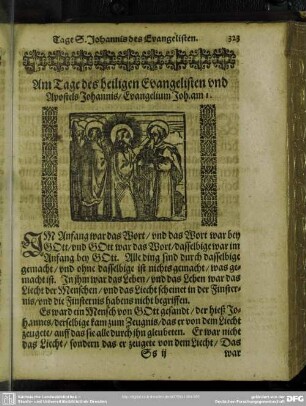 Tage S. Johannis des Evangelisten. 323
Am Tage des heiligen Evangelisten vnd
Apostels Johannis/ Evangelium Joh. am 1.
IM Anfang war das Wort/ vnd das Wort war bey
GOtt/ vnd GOtt war das Wort/ dasselbige war im
Anfang bey GOtt. Alle ding sind durch dasselbige
gemacht/ vnd ohne dasselbige ist nichts gemacht/ was ge-
macht ist. In ihm war das Leben/ vnd das Leben war das
Liecht der Menschen/ vnd das Liecht scheinet in der Finster-
nis/ vnd die Finsternis habens nicht begriffen.
Es ward ein Mensch von GOtt gesand/ der hieß Jo-
hannes/ derselbige kam zum Zeugnis/ das er von dem Liecht
zeugete/ auff das sie alle durch ihn gleubeten. Er war nicht
das Liecht/ sondern das er zeugete von dem Liecht/ Das
Ss ij war
Sächsische Landesbibliothek -
Staats- und Universitätsbibliothek Dresden
gefördert von der
Deutschen Forschungsgemeinschaft
DFG